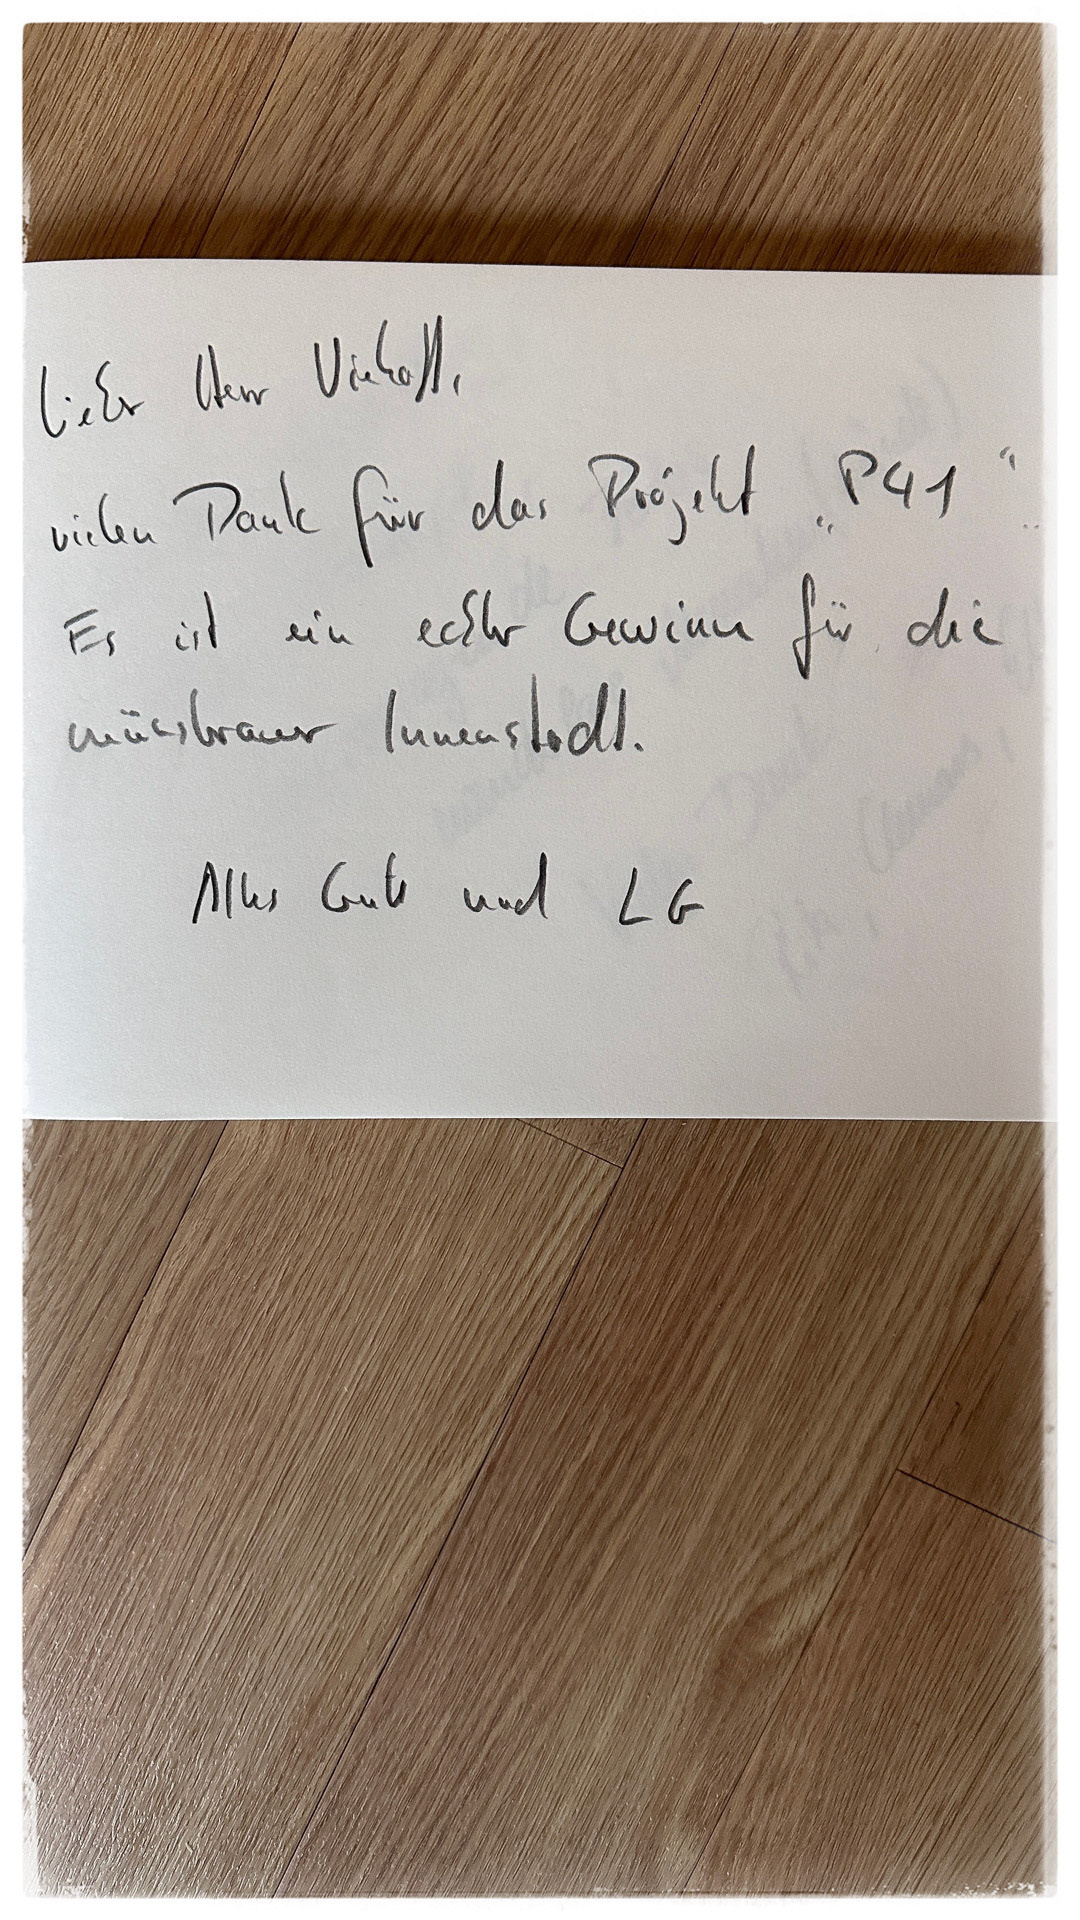 Lieber Herr Viehoff,
vielen Dank für das Projekt „P41“.
Es ist ein echter Gewinn für die
Innenstadt.
Alles Gute und LG